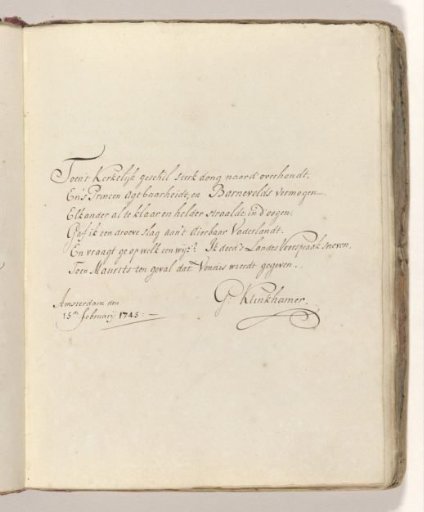 Toen't Kerkelijk geschil sterk dong naard'overhandt,
En's Prinsen Agtbaarheidt, en Barnevelds vermogen
Elkander al te klaar en helder straalde in d'oogen;
Gaf ik een droeve slag aan't dierbaar Vaderlandt.
En vraagt ge op welk een wijs? Ik deed's Landts Voorspraak sneven,
Toen Maurits ten geval dat Vonnis wierdt gegeven.
Amsterdam den
15en February 1743.
G. Klinkhamer.